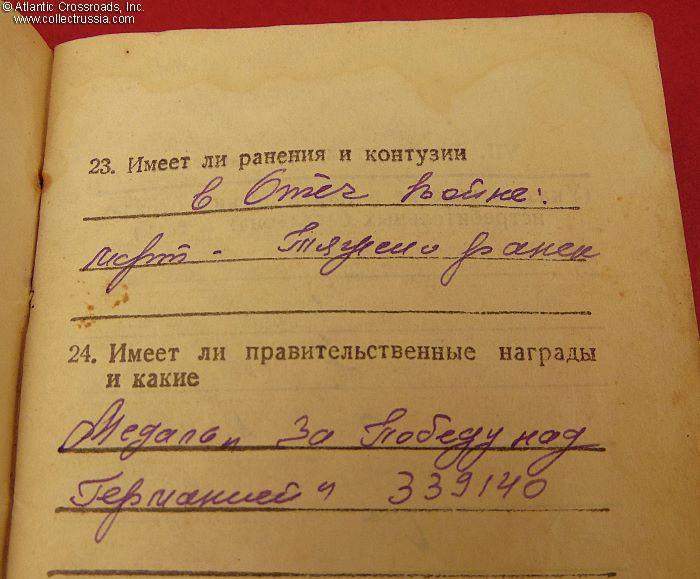 © Atlantic Crossroads, Inc.
www.collectrussia.com
23. Имеет ли ранения и контузии
в Отеч Войне:
март - Тяжело ранен
24. Имеет ли правительственные награды
и какие
Медаль „ За Победу над
Германией " 339140